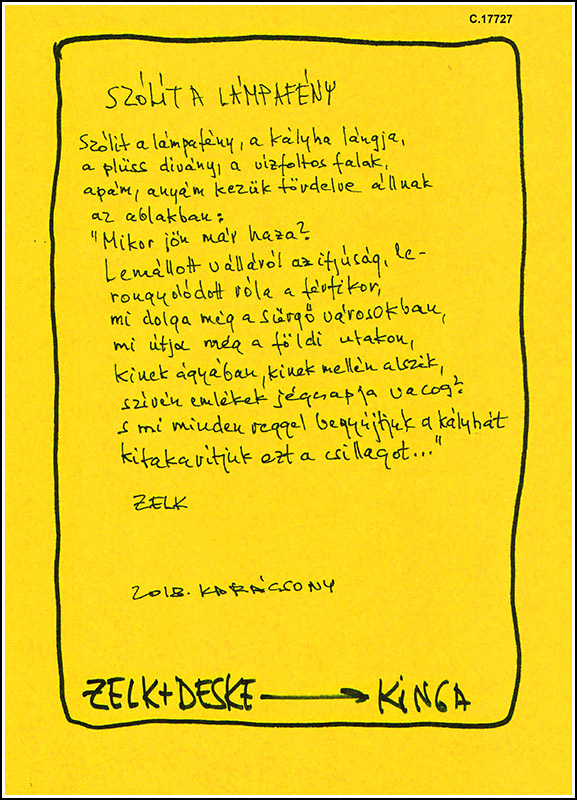 C.17727
SZÓLÍT A LÁMPAFÉNY
Szólít a lámpafény, a kályha lángja,
a plüss dívány, a vízfoltos falak,
apám, anyám kezük tördelve állnak
az ablakban:
"Mikor jön már haza?
Lemállott válláról az ifjúság, le-
rongyolódott róla a férfikor,
mi dolga még a sürgő városokban,
mi útja még a földi utakon,
kinek ágyában, kinek mellén alszik,
szívén emlékek jégcsapja vacog?
S mi minden reggel begyújtjuk a kályhát
kitakarítjuk ezt a csillagot..."
ZELK
2018. KARÁCSONY
ZELK+DESKE → KINGA